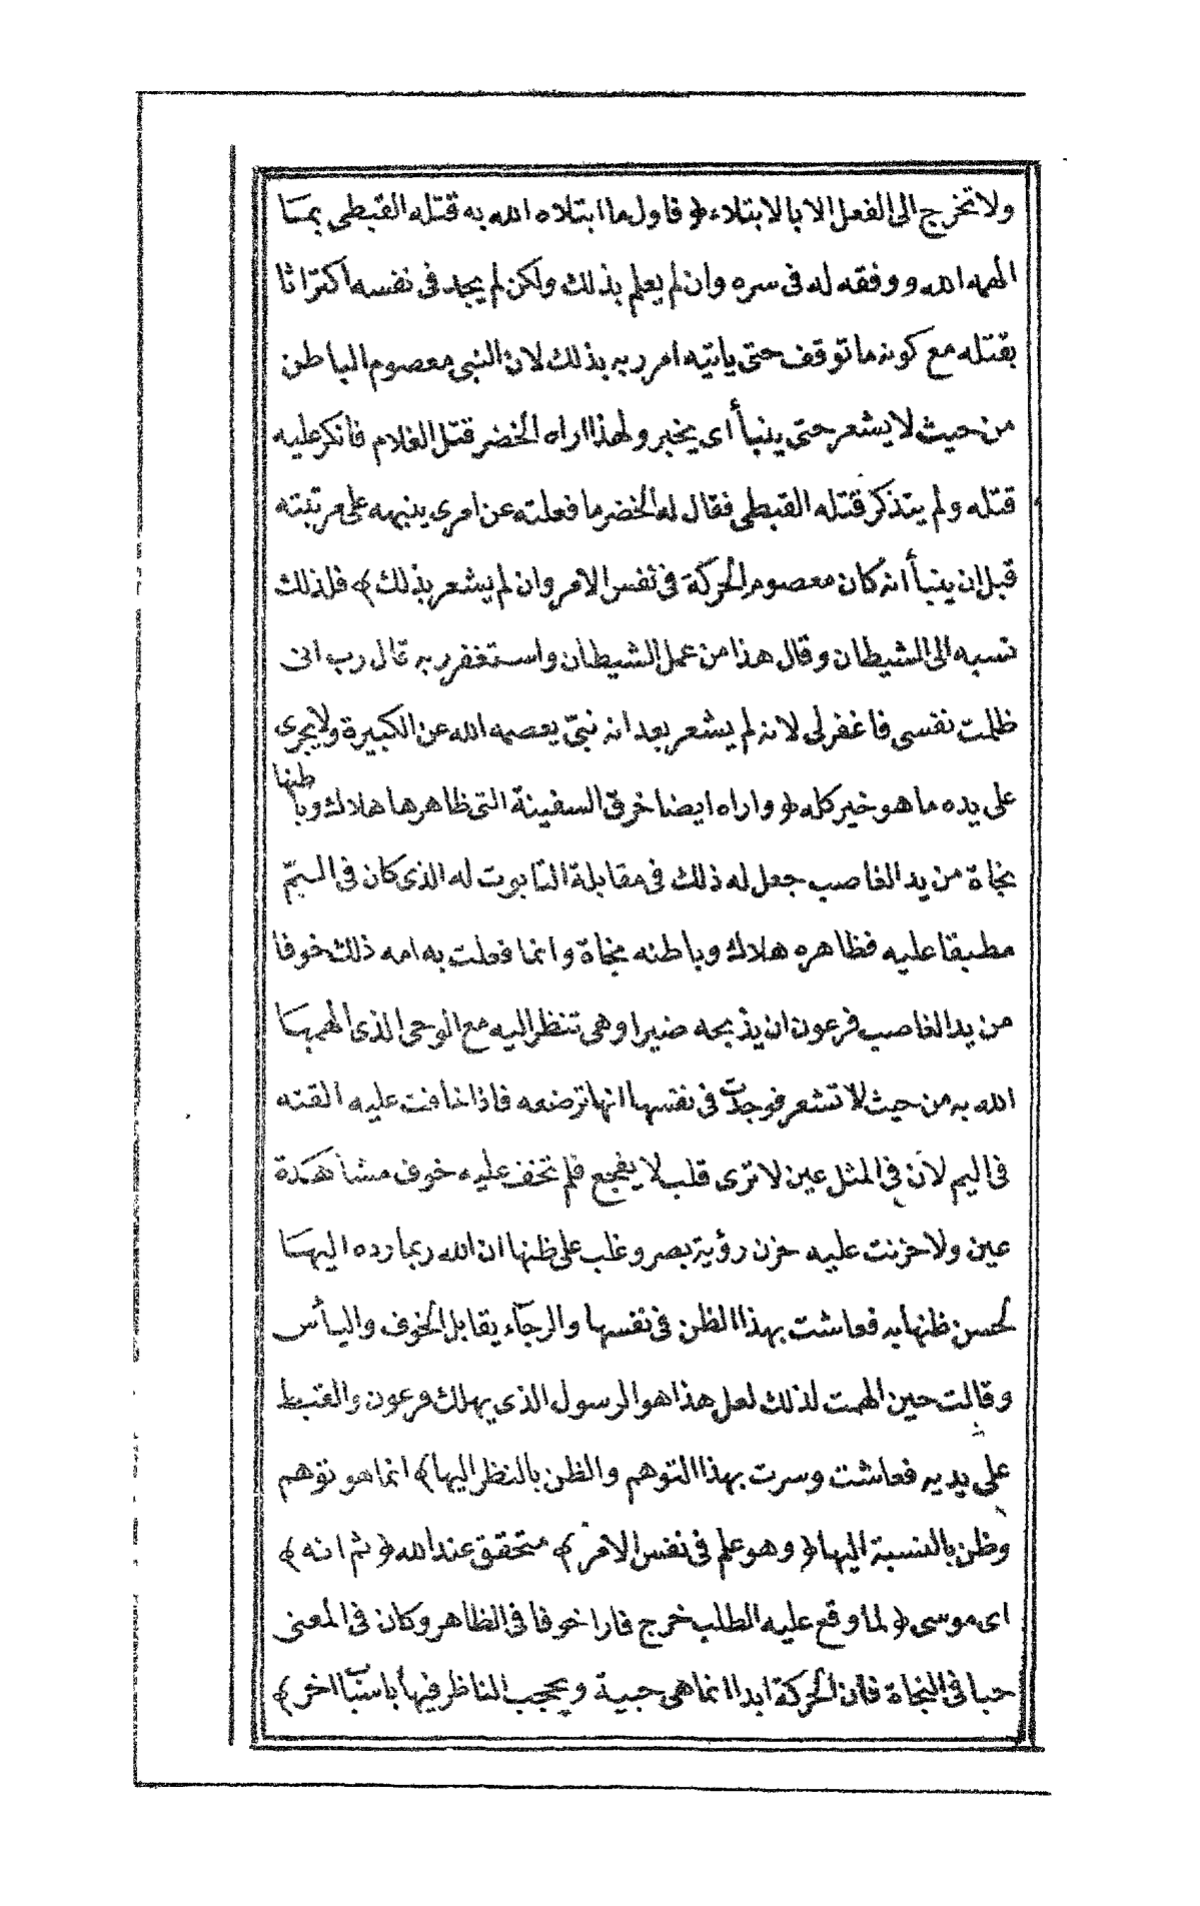 ولا تخرج الى الفعل الا بالابتلاء ﴿ فاول ما ابتلاه الله به قتله القبطى بمـــا
الهمه الله ووفقه له فى سره وان لم يعلم بذلك ولكن لم يجد فى نفسه اكتراثا
بقتله مع كونه ما توقف حتى ياتيه امر ربه بذلك لان النبى معصوم الباطن
من حيث لا يشعر حتى ينبأ اى يخبر ولهذا اراه الخضر قتل الغلام فانكر عليه
قتله ولم يتذكر قتله القبطى فقال له الخضر ما فعلته عن امرى ينبهه على مرتبته
قبل ان ينبأ انه كان معصوم الحركة فى نفس الامر وان لم يشعر بذلك ﴾ فلذلك
نسبه الى الشيطان وقال هذا من عمل الشيطان واستغفر ربه قال رب انى
ظلمت نفسى فاغفر لى لانه لم يشعر بعد انه نبىّ يعصمه الله عن الكبيرة ولا يجرى
على يده ما هو خير كله ﴿ واراه ايضا خرق السفينة التى ظاهرها هلاك وباطنها
نجاة من يد الغاصب جعل له ذلك فى مقابلة التابوت له الذى كان فى اليمّ
مطبقا عليه فظاهره هلاك وباطنه نجاة وانما فعلت به امه ذلك خوفا
من يد الغاصب فرعون ان يذبحه صبرا وهى تنظر اليه مع الوحى الذى الهمهـــا
الله به من حيث لا تشعر فوجدت فى نفسها انها ترضعه فاذا خافت عليه القته
فى اليم لان فى المثل عين لا ترى قلب لا يفجع فلم تخف عليه خوف مشاهدة
عين ولا حزنت عليه حزن رؤية بصر وغلب على ظنها ان الله ربما رده اليهـــا
لحسن ظنها به فعاشت بهذا الظن فى نفسها والرجاء يقابل الخوف واليأس
وقالت حين الهمت لذلك لعل هذا هو الرسول الذى يهلك فرعون والقبط
على يديه فعاشت وسرت بهذا التوهم والظن بالنظر اليها ﴾ انما هو توهم
وظن بالنسبة اليها ﴿ وهو علم فى نفس الامر ﴾ متحقق عند الله ﴿ ثم انه ﴾
اى موسى ﴿ لما وقع عليه الطلب خرج فارا خوفا فى الظاهر وكان فى المعنى
حبا فى النجاة فان الحركة ابدا انما هى حبية ويحجب الناظر فيها باسباب اخر ﴾